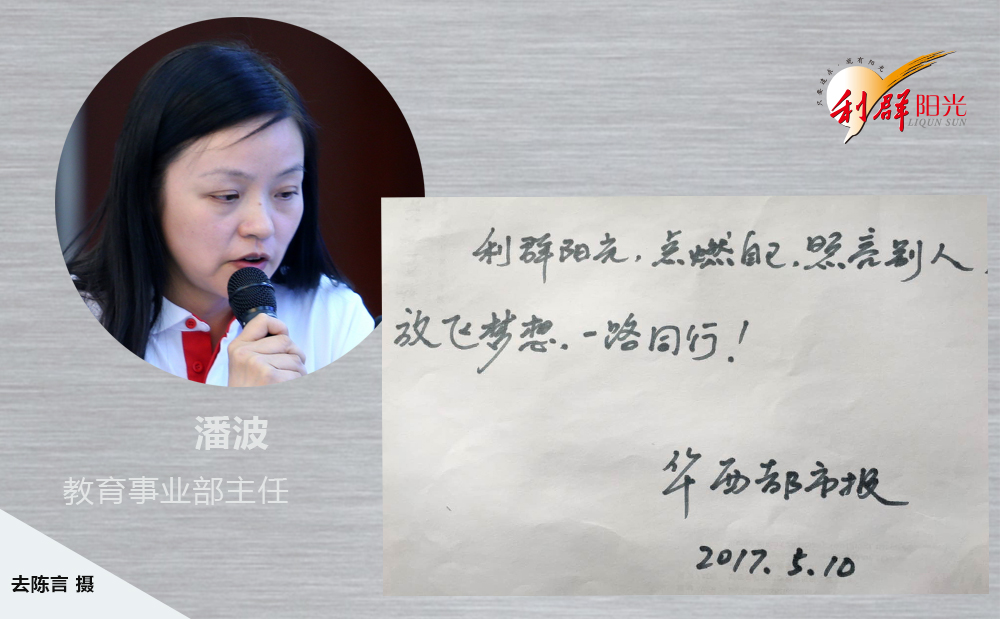 只要读来·就有阳光
利群阳光
LIQUN SUN
利群阳光,点燃自己,照亮别人,
放飞梦想,一路同行!
华西都市报
2017.5.10
潘波
教育事业部主任
去陈言 摄